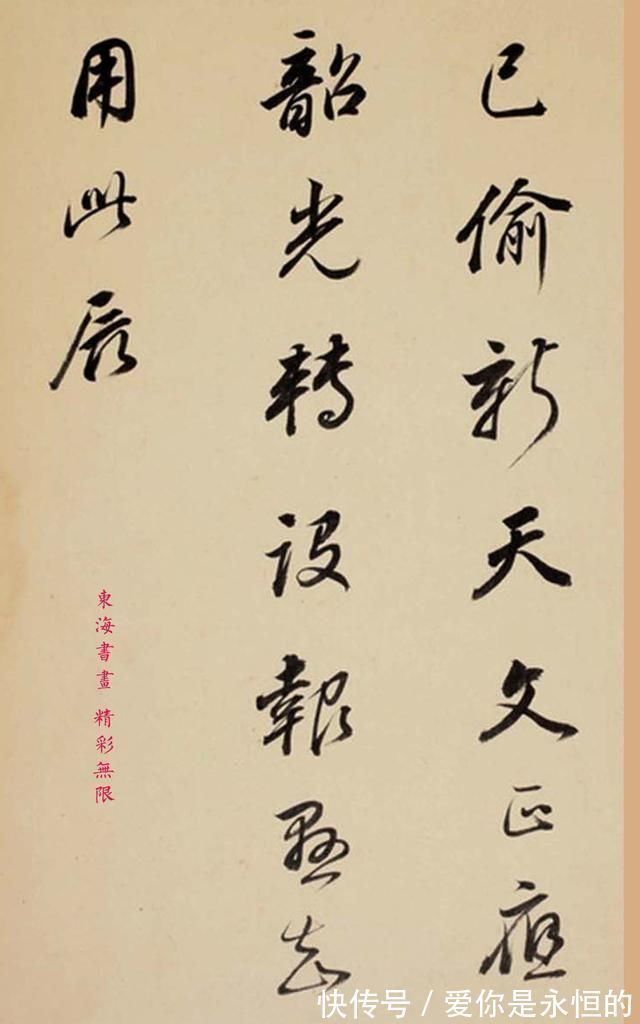 已偷新天文正應
韶光轉設報懸知
用此辰
東海書畫 精彩無限
快传号 / 爱你是永恒的